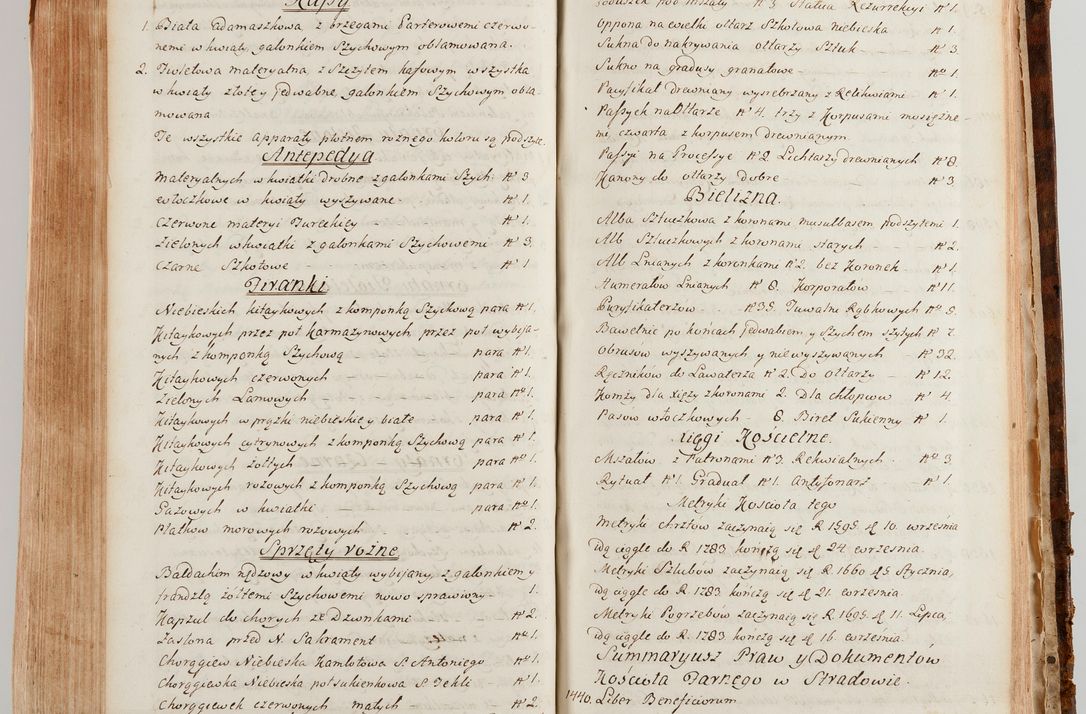 Kapy
1. Biała Adamaszkowa z brzegami Parterowemi czerwo-
nemi w kwiaty, galonkiem Szychowym oblamowana.
2. Fioletowa materyalna z Szczytem kafowym wszystka
w kwiaty złote y jedwabne, galonkiem Szychowym obla-
mowana
Te wszystkie apparaty płotnem rożnego koloru są podszyte.
Antepedya
Materyalnych w kwiatki drobne z galonkami Szych: Nº 3
włoczkowe w kwiaty wyszywane - Nº 1.
Czerwone materyi Tureckiey - Nº 1.
Zielonych w kwiatki z galonkami Szychowemi - Nº 3.
Czarne Szkotowe - Nº 1
Firanki
Niebieskich kitaykowych z komponką Szychową para Nº 1.
Kitaykowych przez poł karmazynowych, przez poł wybija-
nych z komponką Szychową - para Nº 1.
Kitaykowych czerwonych - para Nº 1.
Zielonych Lamowych - para Nº 1.
Kitaykowych w prążki niebieskie y białe para Nº 1.
Kitaykowych cytrynowych z komponką Szychową para Nº 1.
Kitaykowych żołtych - para Nº 1.
Kitaykowych rożowych z komponką Szychową para Nº 1.
Gazowych w kwiatki - para Nº 1.
Płatkow morowych rożowych - Nº 2.
Sprzęty rożne
Baldachim w kwiaty wybijany, z galonkiem y
frandzlą żołtemi Szychowemi nowo sprawiony - 1.
Kapzul do chorych ze Dzwonkami - Nº 2.
Zasłona przed N. Sakrament - Nº 1.
Chorągiew Niebieska Kamlotowa S. Antoniego Nº 1.
Chorągiewka Niebieska połsukienkowa S. Tekli - Nº 1.
Chorągiewek czerwonych małych - Nº 2.
Poduszek pod mszały - Nº 3 Statua Rezurrekcyi Nº 1.
Oppona na wielki ołtarz Szkotowa niebieska Nº 1.
Sukna do nakrywania ołtarzy Sztuk - Nº 3.
Sukno na gradusy granatowe - Nº 1.
Pacyfikał drewniany wysrebrzany z Relikwiami Nº 1.
Passyek na Ołtarze Nº 4. trzy z Korpusami mosiężne-
mi, czwarta z korpusem drewnianym
Passyi na Processye Nº 2. Lichtarzy drewnianych Nº 8.
Kanony do ołtarzy dobre - Nº 3.
Bielizna.
Alba Sztuczkowa z koronami musulbasem podszytemi 1.
Alb Sztuczkowych z koronami starych - Nº 2.
Alb Lnianych z koronkami Nº 2. bez Koronek - Nº 1.
Humerałow Lnianych Nº 8. Korporałow - Nº 11.
Puryfikaterzow - Nº 38. Tuwalni Rąbkowych Nº 8.
Bawełnic po końcach jedwabiem y Szychem szytych Nº 7.
Obrusow wyszywanych y niewyszywanych Nº 32.
Ręczników do Lawaterza Nº 2. Do ołtarzy - Nº 12.
Komży dla xięży z koronami 2. Dla chłopcow Nº 4.
Pasow włoczkowych - 8. Biret Sukienny Nº 1.
Xięgi Kościelne.
Mszałow z Patronami Nº 3. Rekwialnych - Nº 3.
Rytuał Nº 1. Graduał Nº 1. Antyfonarz Nº 1.
Metryki Kościoła tego
Metryki Chrztow zaczynaią się R. 1595 d. 10. września
idą ciągle do R. 1783 kończą się d. 24 września.
Metryki Szlubow zaczynaią się R. 1660 d. 5. Stycznia,
idą ciągle do R. 1783 kończą się d. 21. września
Metryki Pogrzebow zaczynaią się R. 1605. d. 11. Lipca,
idą ciągle do R. 1783 kończą się d. 16. września.
Summaryusz Praw y Dokumentów
Kościoła Farnego w Stradowie.
1440. Liber Beneficiorum